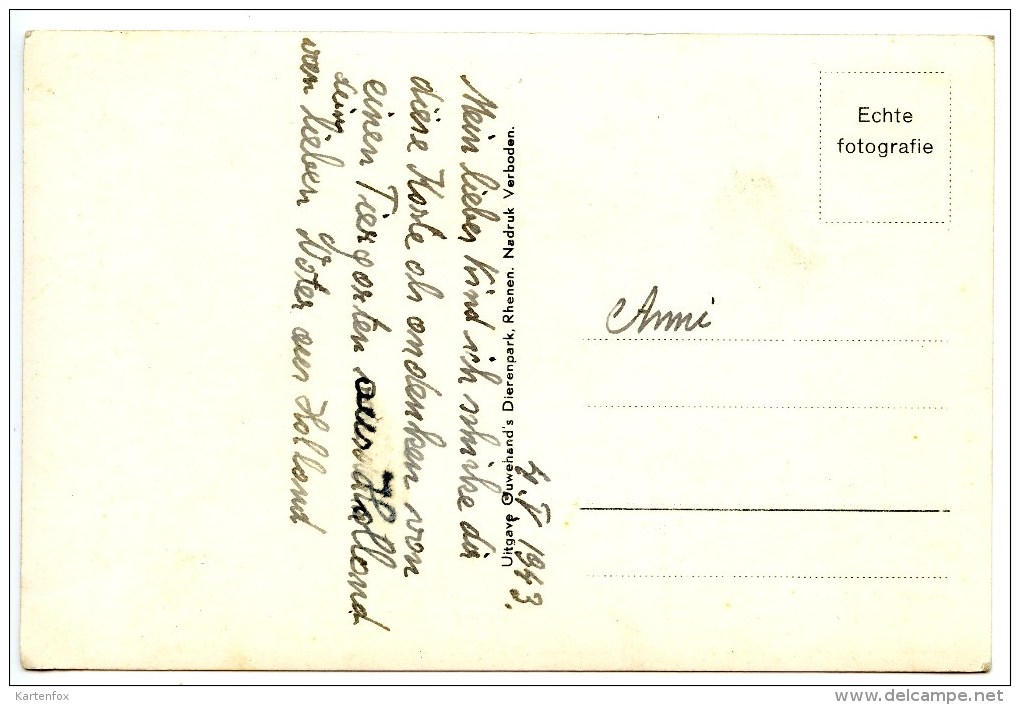 4.V. 1943.
Mein liebes Kind ich schike dir
diese Karte als andenken von
einen Tiergarten aus Holland
dein
von lieben Vater aus Holland
Uitgave Ouwehand's Dierenpark, Rhenen. Nadruk Verboden.
Echte
fotografie
Anni
Kartenfox
www.delcampe.net